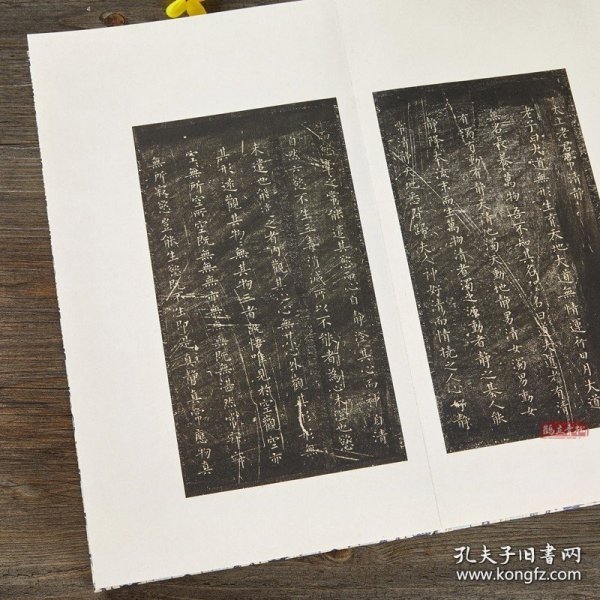 老子曰大道無形生育天地大道無情運行日月大道
無名長養萬物吾不知其名強名曰道夫道者有清
有濁有動有靜天清地濁天動地靜男清女濁男動女
靜降本流末而生萬物清者濁之源動者靜之基人能
常清靜天地悉皆歸夫人神好清而心擾之人心好靜
而慾牽之常能遣其慾而心自靜澄其心而神自清
自然六慾不生三毒消滅所以不能者為心未澄慾
未遣也能遣之者內觀其心心無其心外觀其形形無
其形遠觀其物物無其物三者既悟唯見於空觀空亦
空無所空所空既無無無亦無無無既無湛然常寂寂
無所寂慾豈能生慾既不生即是真靜真常應物真
孔夫子旧書网
www.kongfz.com